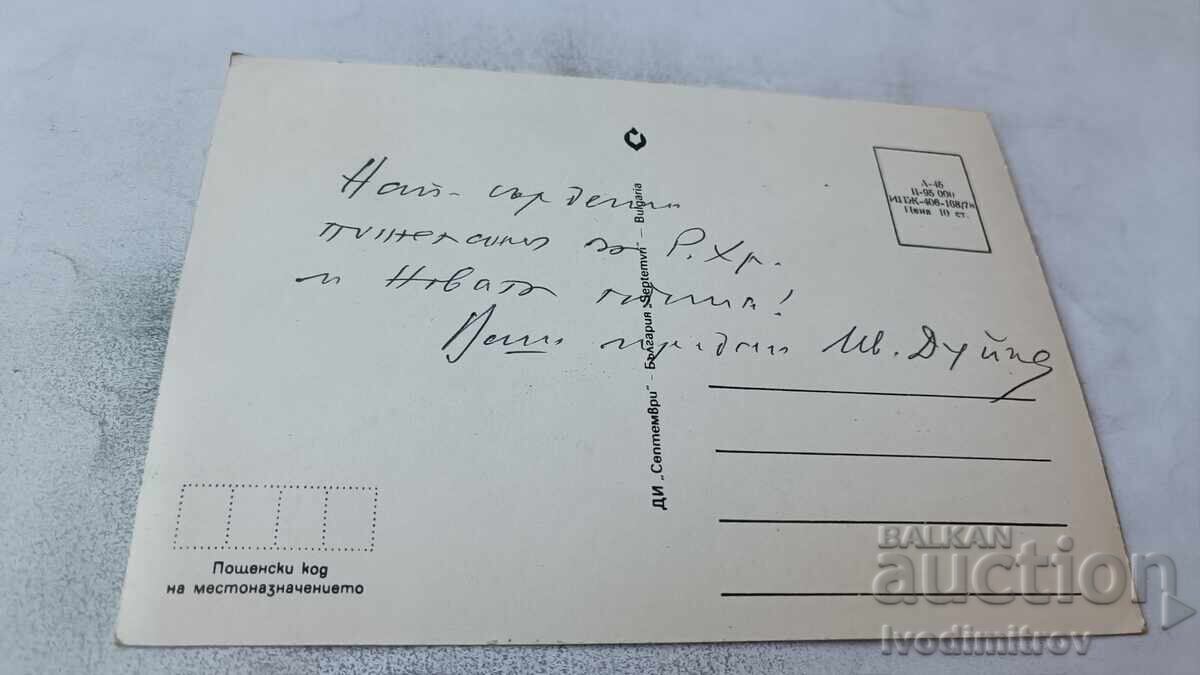 Най-сърдечни
пожелания за Р. Хр.
и Новата година!
Ваш предан Ив. Дуйчев
ДИ „Септември" - България „Septemvri" - Bulgaria
А-45
П-95 000
Цена 10 ст.
Пощенски код
на местоназначението
BALKAN
auction
Ivodimitrov